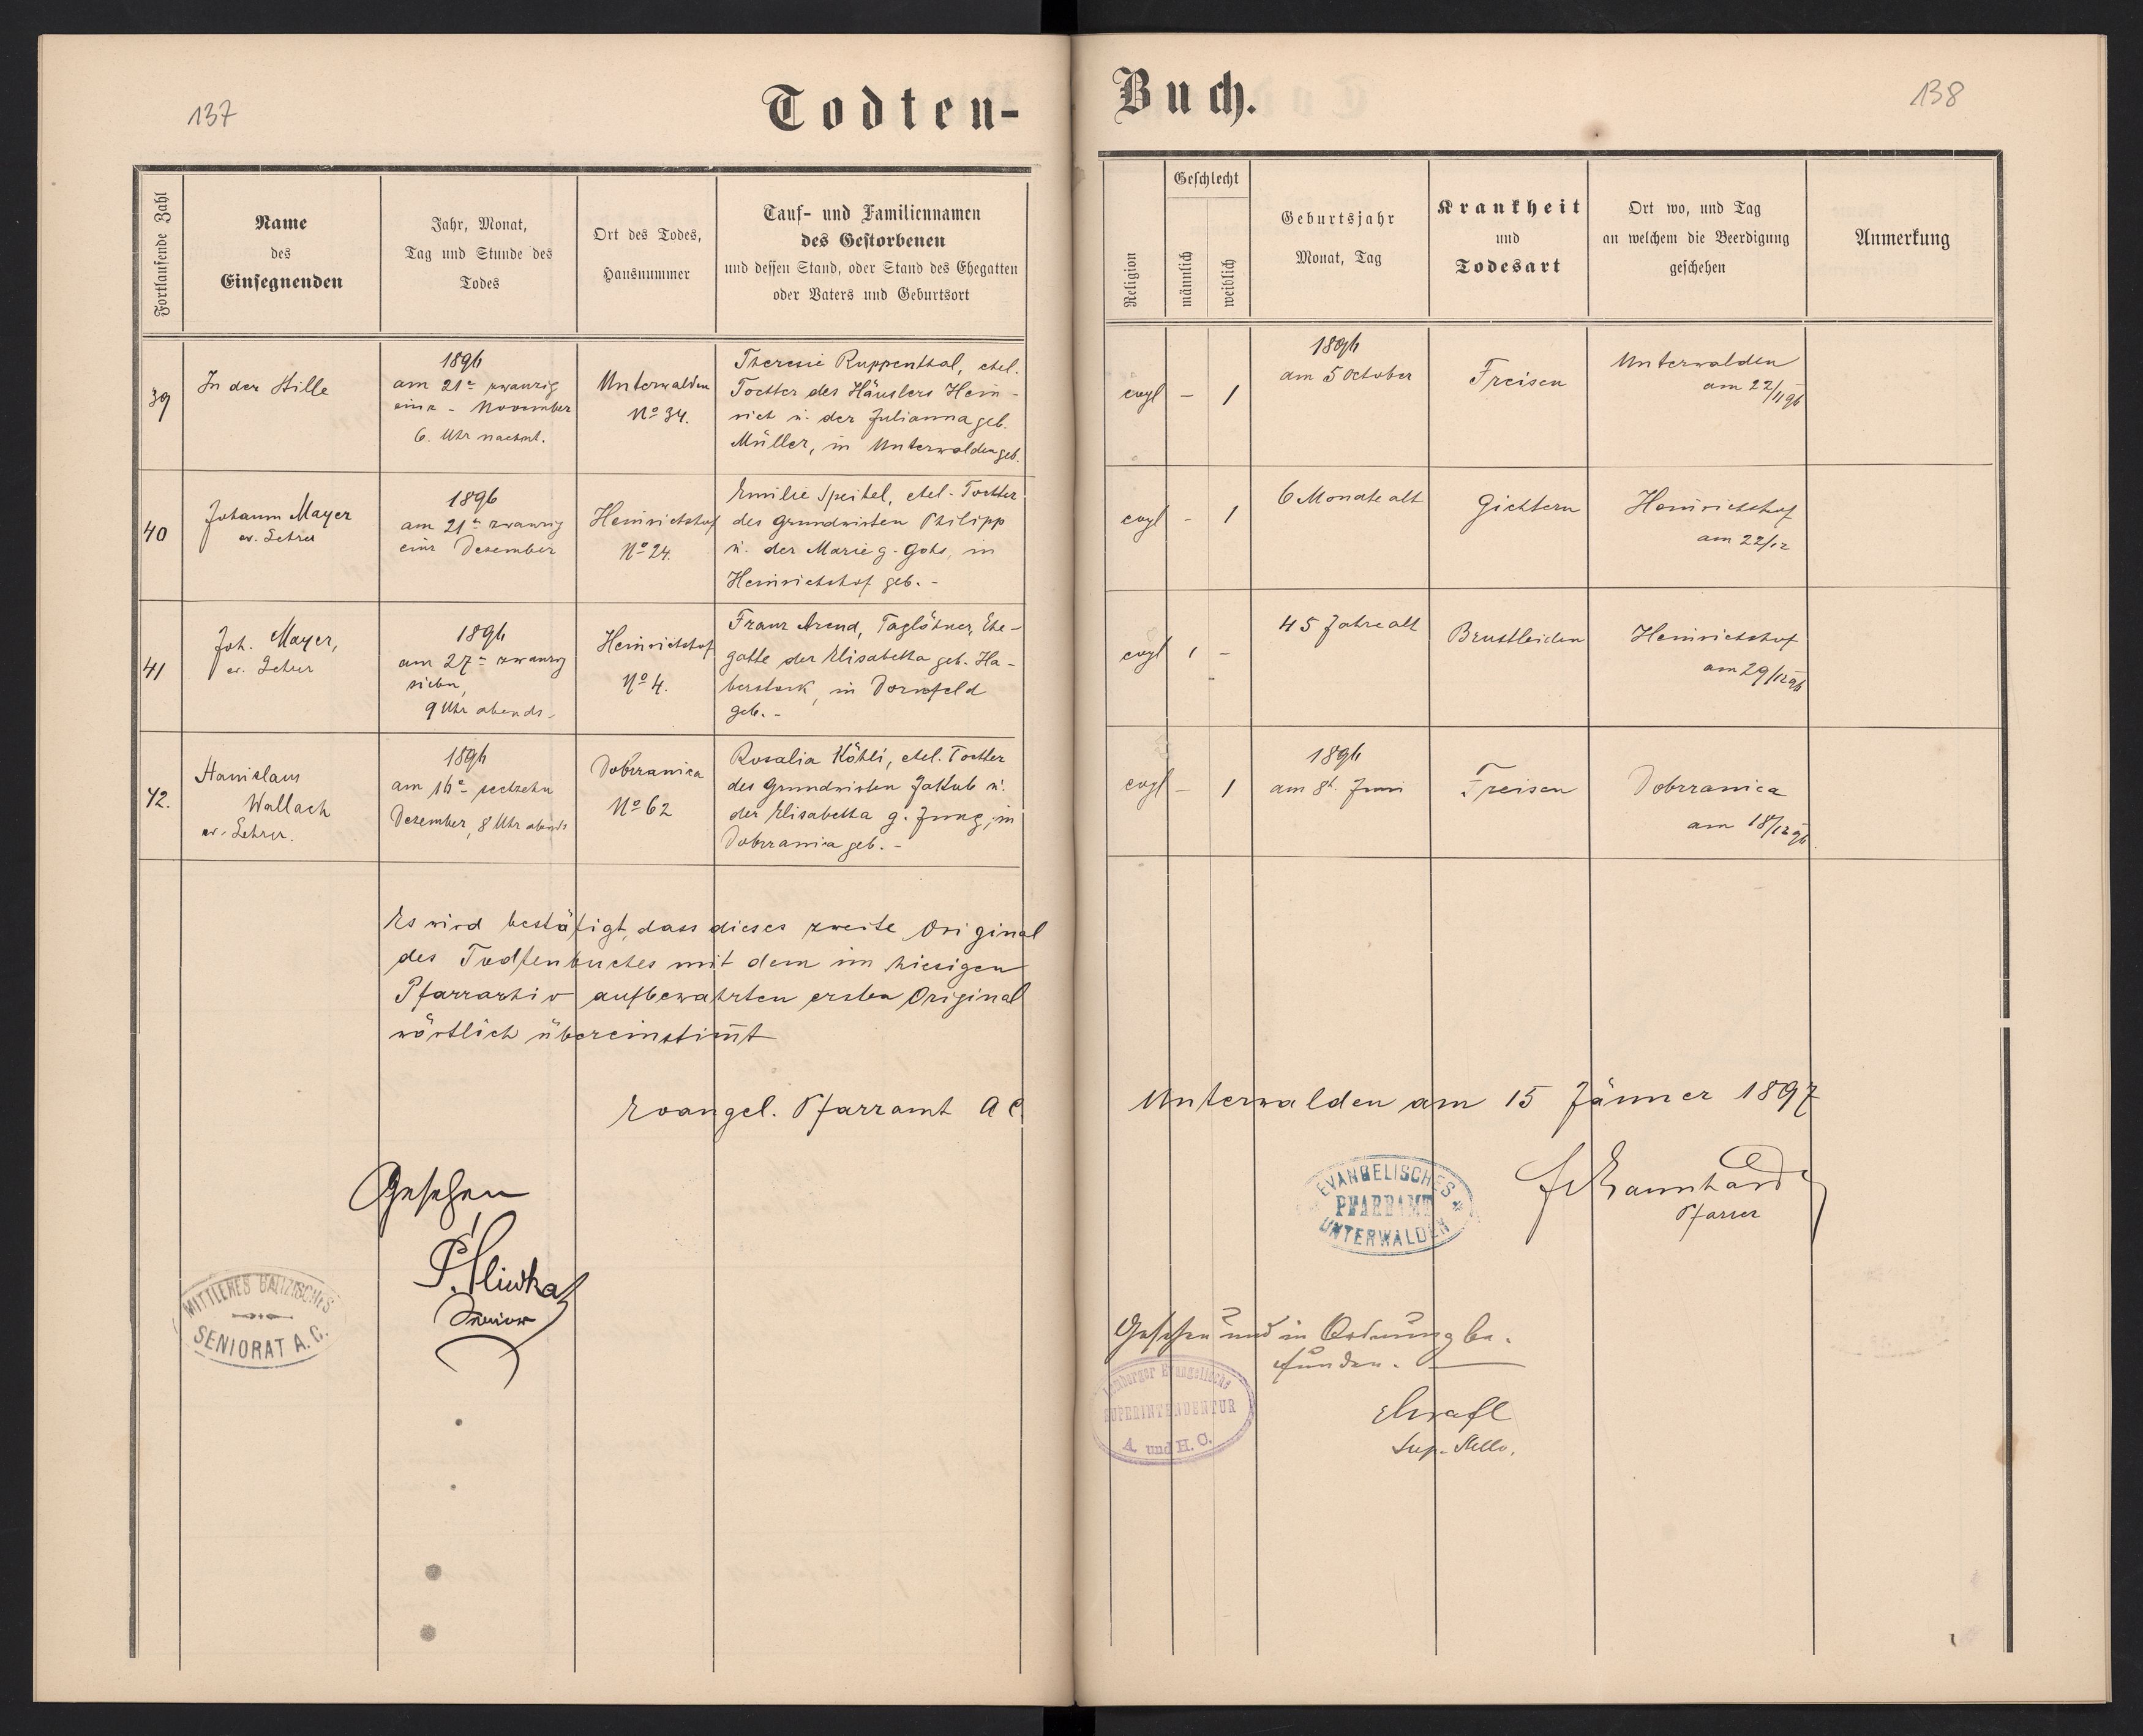 137
Todten-
Fortlaufende Zahl
Name
des
Einsegnenden
Jahr, Monat,
Tag und Stunde des
Todes
Ort des Todes,
Hausnummer
Tauf- und Familiennamen
des Gestorbenen
und dessen Stand, oder Stand des Ehegatten
oder Vaters und Geburtsort
39
In der Stille
1896
am 21ten zwanzig
eins - November
6. Uhr nachmt.
Unterwalden
No 34.
Theresie Ruppenthal, ehel.
Tochter des Häuslers Hein-
rich u. der Julianna geb.
Müller, in Unterwalden geb.
40
Johann Mayer
ev. Lehrer
1896
am 21ten zwanzig
eins Dezember
Heinrichshof
No 24.
Emilie Speitel, ehel. Tochter
des Grundwirten Philipp
u. der Marie g. Gohs, in
Heinrichshof geb. -
41
Joh. Mayer,
ev. Lehrer
1896
am 27ten zwanzig
sieben,
9 Uhr abends.
Heinrichshof
No 4.
Franz Arend, Taglöhner, Ehe-
gatte der Elisabetha geb. Ha-
berstock, in Dornfeld
geb. -
42.
Stanislaus
Wallach
ev. Lehrer.
1896
am 16ten sechzehn
Dezember, 8 Uhr abends
Dobrzanica
No 62
Rosalia Köhli, ehel. Tochter
des Grundwirten Jakkub u.
der Elisabetha g. Jung, in
Dobrzanica geb. -
Es wird bestätigt, dass dieses zweite Original
des Todtenbuches mit dem im hiesigen
Pfarrarhiv aufbewahrten ersten Original
wörtlich übereinstim̅t
Evangel. Pfarramt A C.
Gesehen
P. Sliwka
Senior
MITTLERES GALIZISCHES
SENIORAT A. C.
Buch.
138
Religion
Geschlecht
männlich
weiblich
Geburtsjahr
Monat, Tag
Krankheit
und
Todesart
Ort wo, und Tag
an welchem die Beerdigung
geschehen
Anmerkung
evgl - 1
1896
am 5 October
Freisen
Unterwalden
am 22/11 96
evgl - 1
6 Monate alt
Gichtern
Heinrichshof
am 22/12
evgl 1 -
45 Jahre alt
Brustleiden
Heinrichshof
am 29/12 96
evgl - 1
1896
am 8t. Juni
Freisen
Dobrzanica
am 18/12 96.
Unterwalden am 15 Jänner 1897
EVANGELISCHES
PFARRAMT
UNTERWALDEN
Pfarrer
Gesehen und in Ordnung be-
funden.
Lemberger Evangelische
SUPERINTENDENTUR
A. und H. C.
Sup. Stellv.